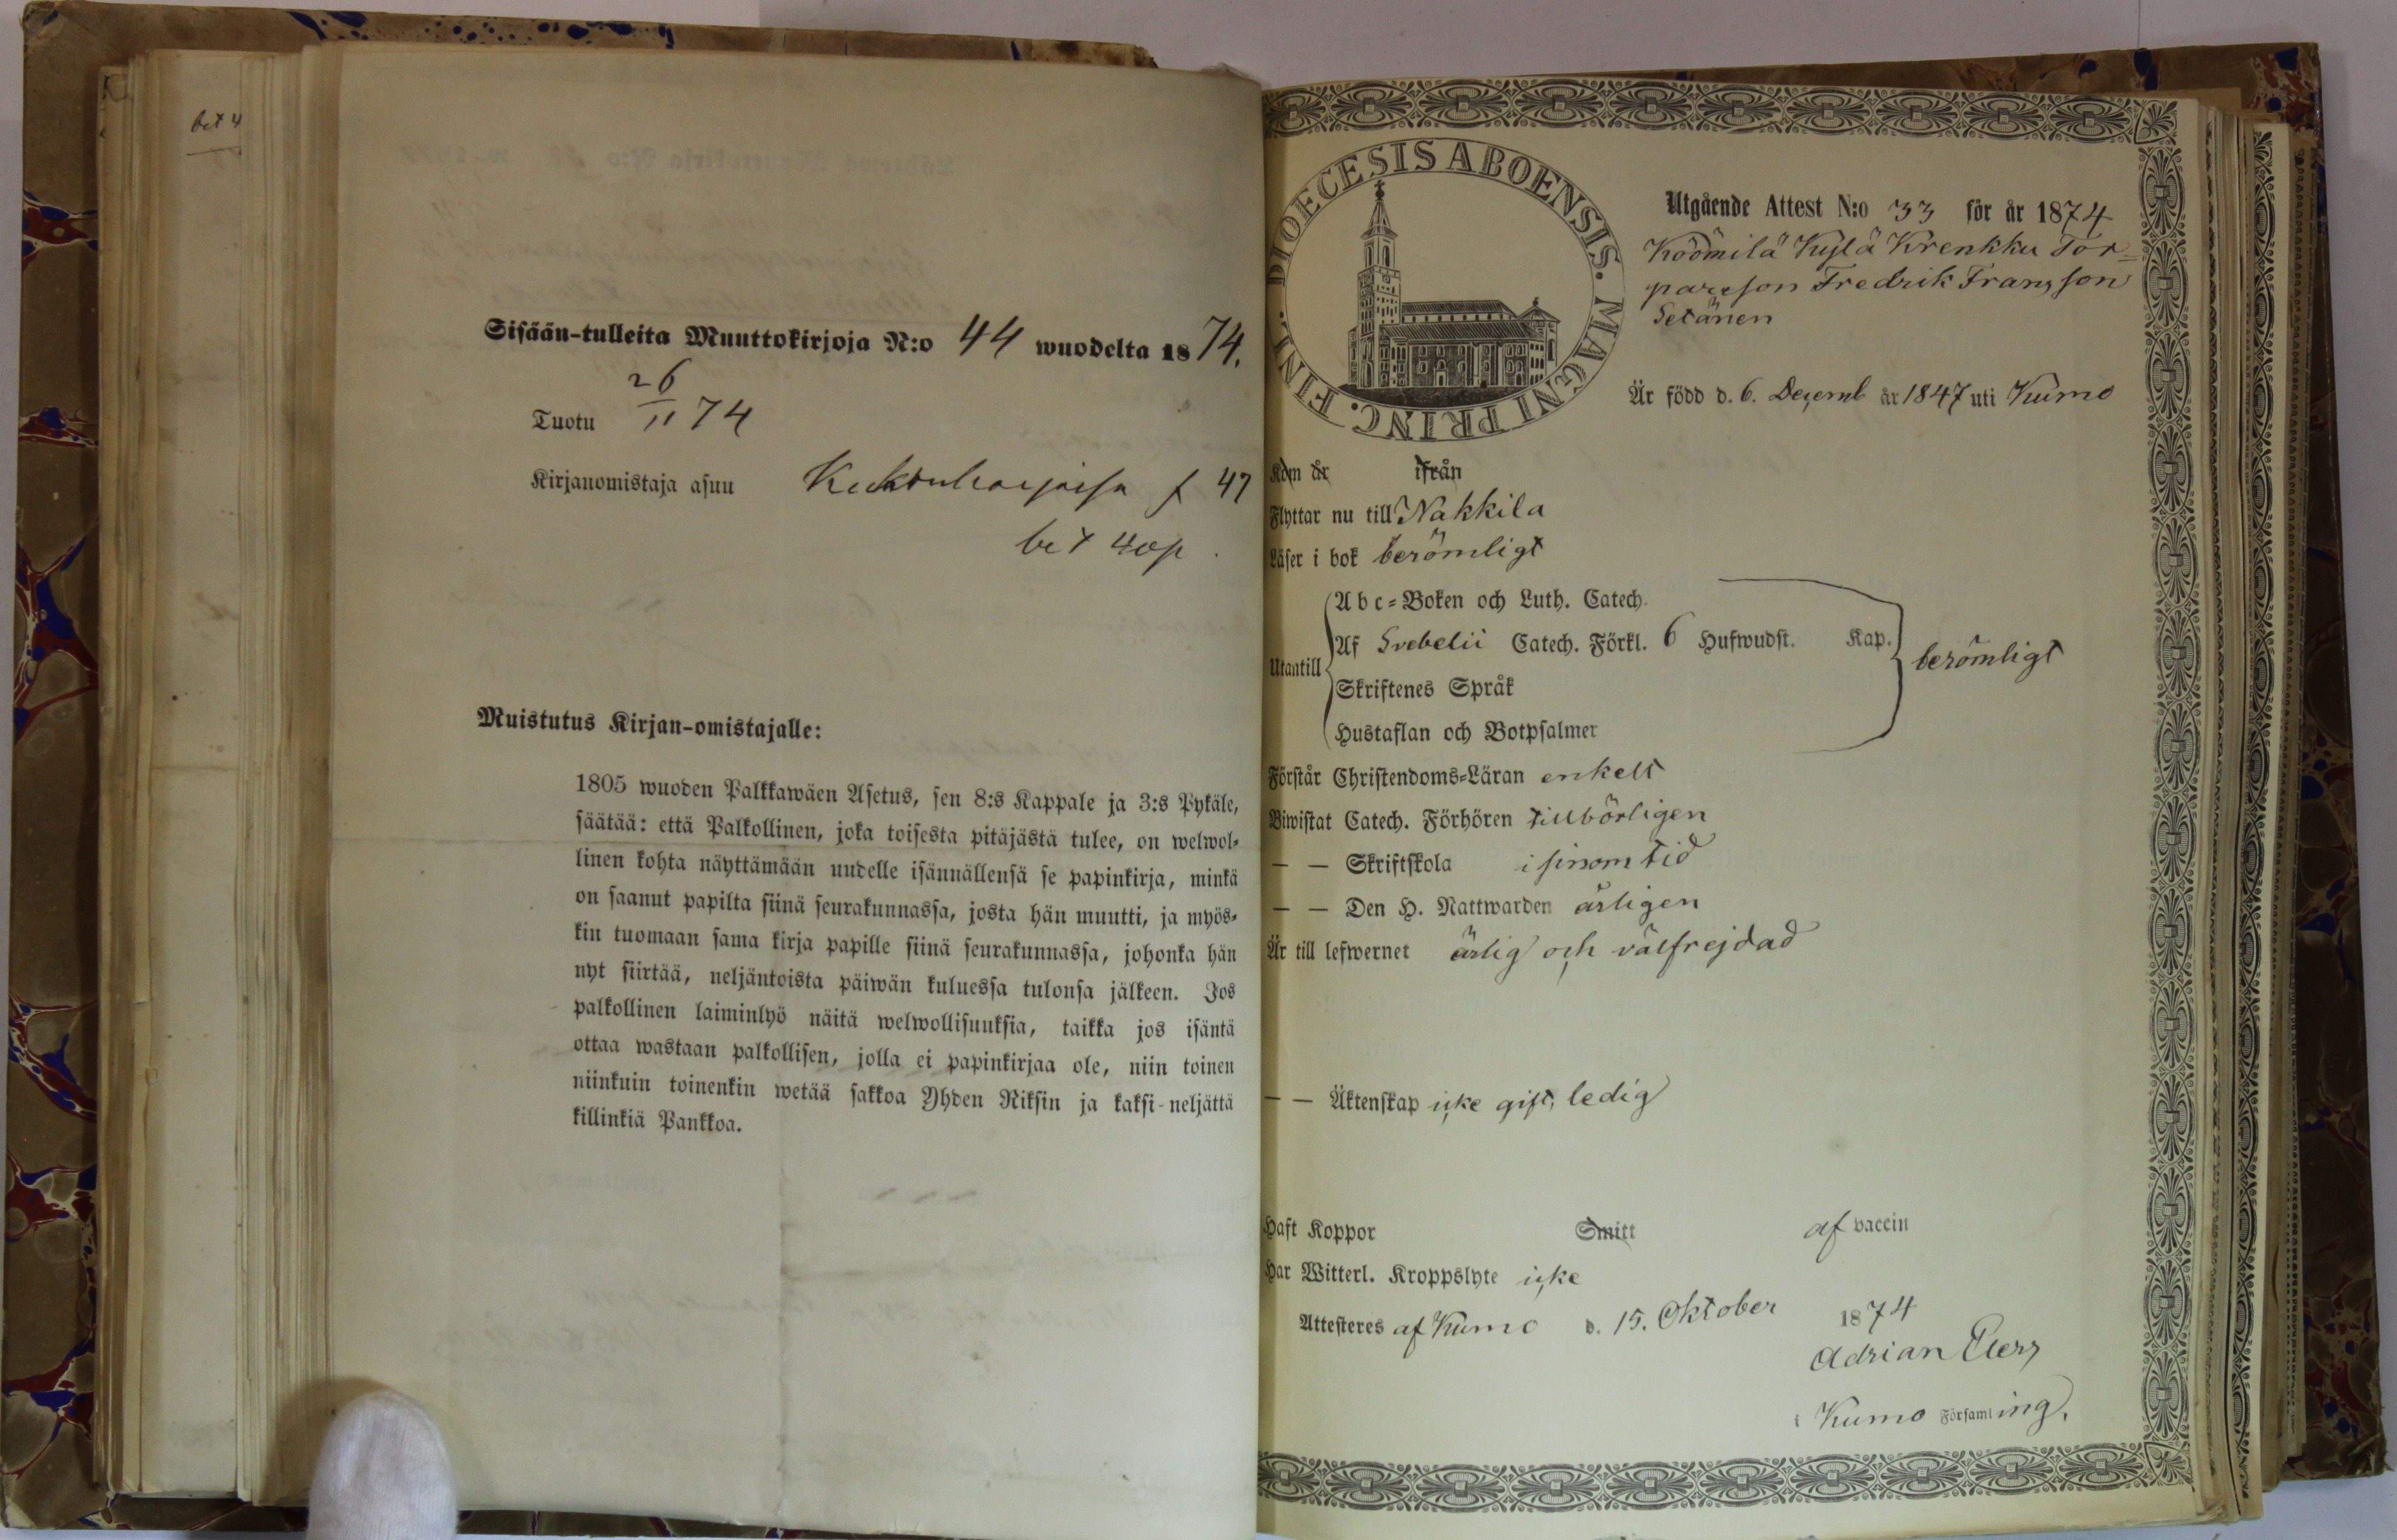 bet 4
Sisään-tulleita Muuttokirjoja N:o 44 wuodelta 1874.
Tuotu 26/11 74
Kirjanomistaja asuu f 47
bet 40p.
Muistutus Kirjan-omistajalle:
1805 wuoden Palkkawäen Asetus, sen 8:s Kappale ja 3:s Pykäle,
säätää: että Palkollinen, joka toisesta pitäjästä tulee, on welwol-
linen kohta näyttämään uudelle isännällensä se papinkirja, minkä
on saanut papilta siinä seurakunnassa, josta hän muutti, ja myös-
kin tuomaan sama kirja papille siinä seurakunnassa, johonka hän
nyt siirtää, neljäntoista päiwän kuluessa tulonsa jälkeen. Jos
palkollinen laiminlyö näitä welwollisuuksia, taikka jos isäntä
ottaa wastaan palkollisen, jolla ei papinkirjaa ole, niin toinen
niinkuin toinenkin wetää sakkoa Yhden Riksin ja kaksi-neljättä
killinkiä Pankkoa.
DIOECESIS ABOENSIS. MAGNI PRINC. FINL.
Utgående Attest N:o 33 för år 1874
Köömilä Kylä Krenkku Tor-
pareson Fredrik Fransson
Setänen
Är född d. 6. Decemb år 1847 uti Kumo
Kom år ifrån
Flyttar nu till Nakkila
Läser i bok berömligt
Utantill
Abc-Boken och Luth. Catech.
Af Svebelii Catech. Förkl. 6 Hufwudst. Kap.
berömligt
Skriftenes Språk
Hustaflan och Botpsalmer
Förstår Christendoms-Läran enkelt
Biwistat Catech. Förhören tillbörligen
— — Skriftskola i sinom tid
— — Den H. Nattwarden årligen
Är till lefwernet ärlig och välfrejdad
— — Äktenskap icke gift, ledig
Haft Koppor Smitt af vaccin
Har Witterl. Kroppslyte icke
Attesteres af Kumo d. 15. Oktober 1874
Adrian
i Kumo Församling.